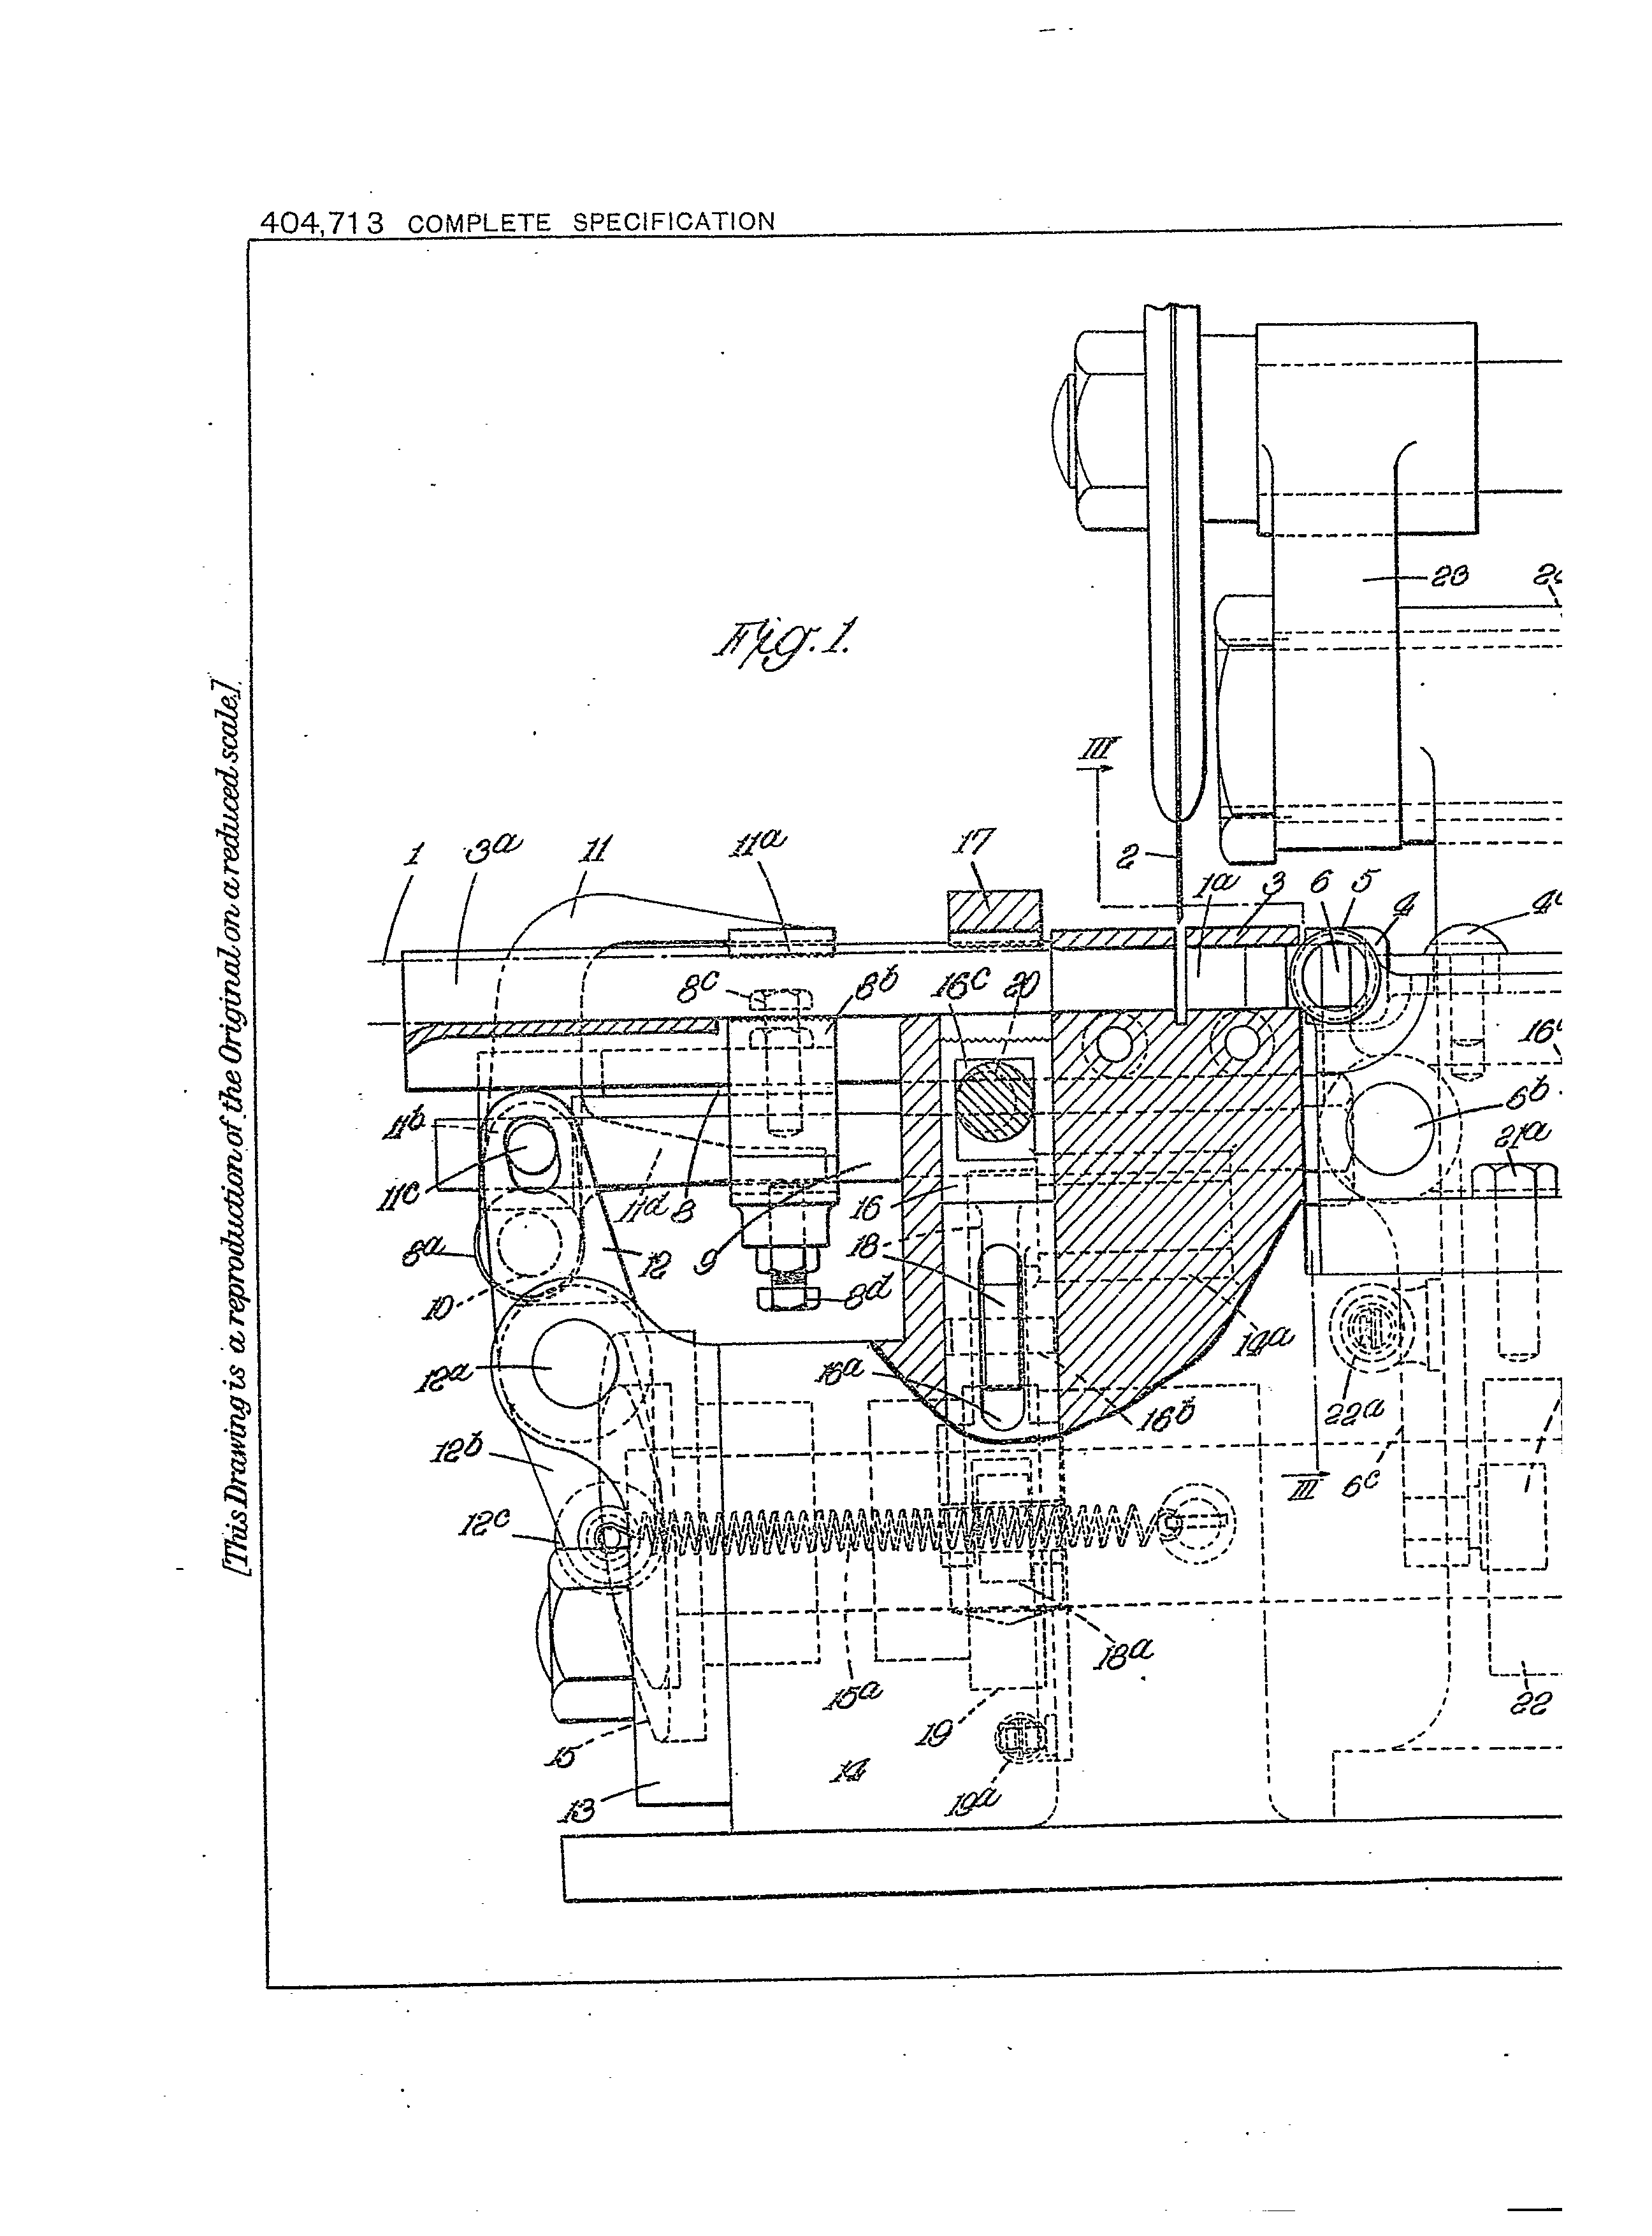 404,713 COMPLETE SPECIFICATION
[This Drawing is a reproduction of the Original on a reduced scale.]
Fig. 1.
23
III
2
1 3a 11 11a 17
1a 3 6 5 4
8c 8b 16c 20
6b
21a
11b
11c
11d 8
16
8a
12 9 18
10
8d
12a
16a
19a
16b
22a
12b
III 6c
12c
18a
15a
19
22
15
14
13
19a